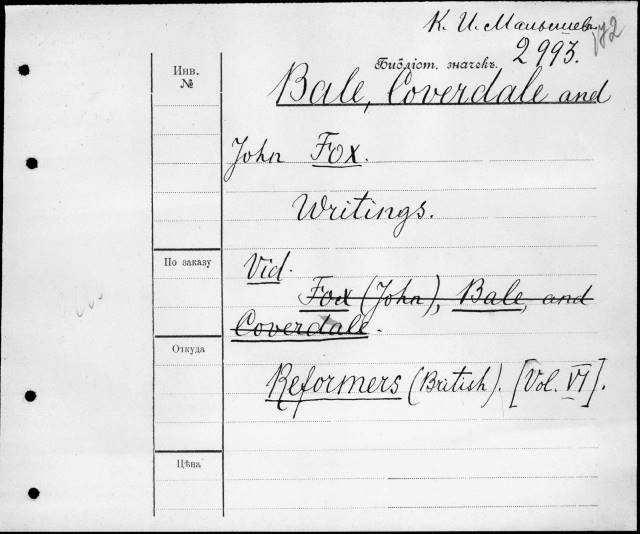 К. И. Малышевъ.
172
Библіот. значекъ. 2993.
Инв.
№
Bale, Coverdale and
John Fox.
Writings.
По заказу
Vid.
Fox (John), Bale, and
Coverdale.
Откуда
Reformers (British). [Vol. VI].
Цѣна